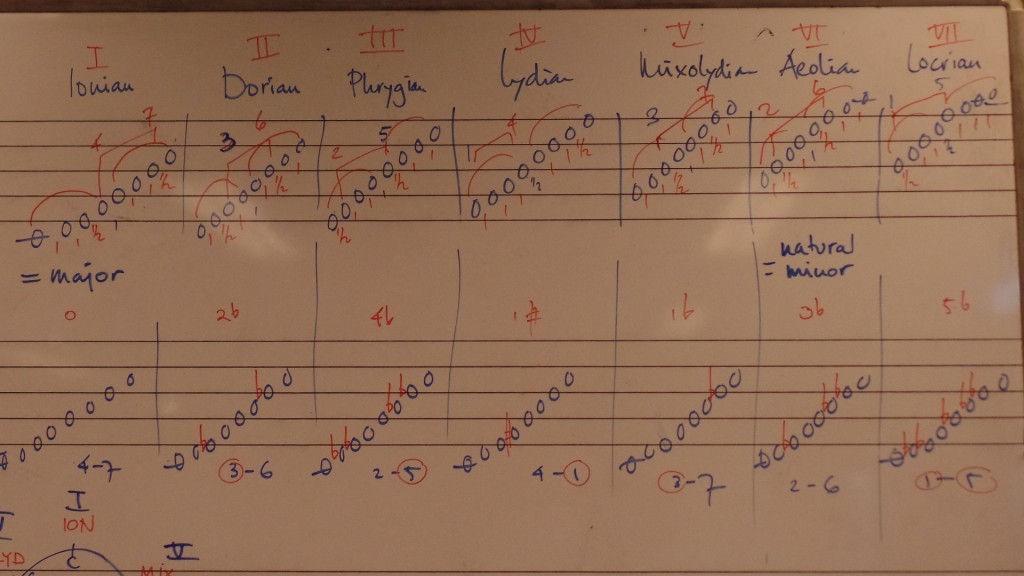 I II III IV V VI VII
Ionian Dorian Phrygian Lydian Mixolydian Aeolian Locrian
4 7 3 6 2 5 1 4 3 7 2 6 1 5
1 1 ½ 1 1 1 ½
1 ½ 1 1 1 ½ 1
½ 1 1 1 ½ 1 1
1 1 1 ½ 1 1 ½
1 1 ½ 1 1 ½ 1
1 ½ 1 1 ½ 1 1
½ 1 1 ½ 1 1 1
= major
= natural minor
0 2b 4b 1# 1b 3b 5b
4-7 3-6 2-5 4-1 3-7 2-6 1-5
I
ION
C
V
LYD
V
MIX